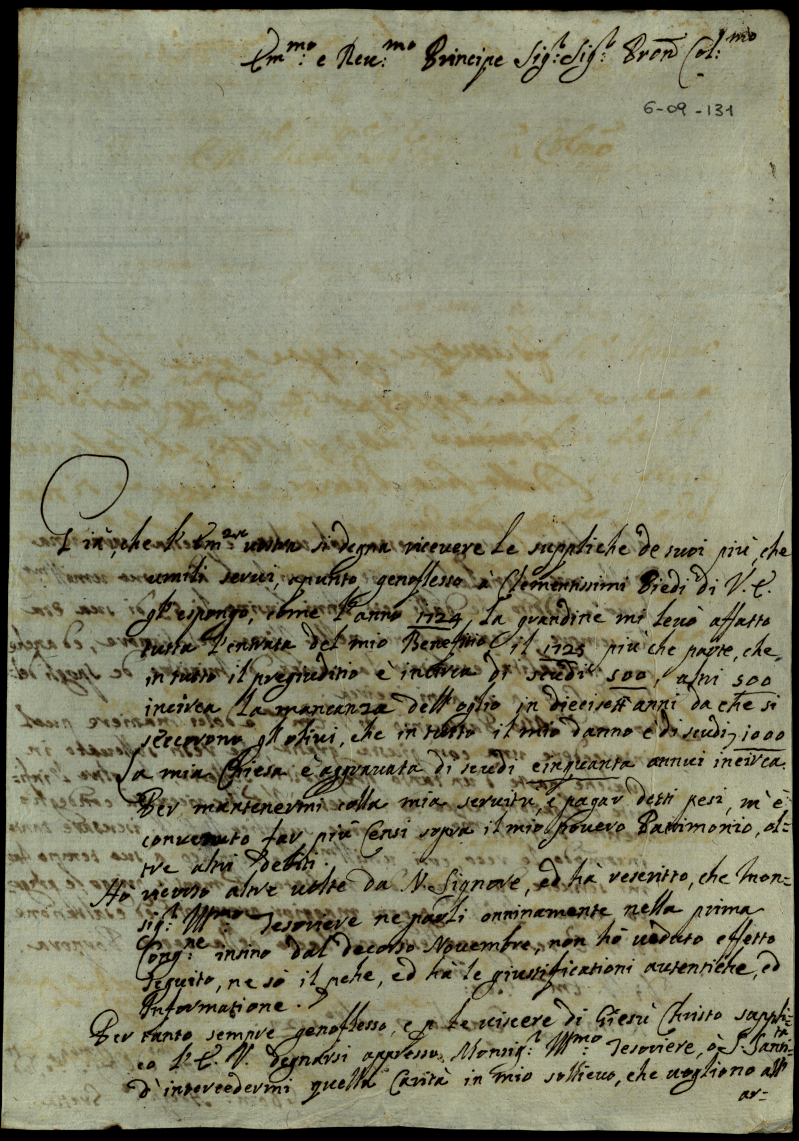 Em:mo e Rev:mo Principe Sig:r Sig:r Pron Col:mo
6-09-131
che l'Em:za vostra si degna ricevere le suppliche de suoi più, che
umili servi, apunto genoflesso à Clementissimi Piedi di V. E.
gl'espongo, come l'anno 1724 la grandine mi levò affatto
tutta l'entrata del mio Beneficio, il 1725 più che parte, che
in tutto il pregiuditio è incirca di scudi 500, altri 500
incirca la mancanza dell'oglio in diecisett'anni da che si
seccorono gl'olivi, che in tutto il mio danno è di scudi 1000
La mia Chiesa è aggravata di scudi cinquanta annui incirca.
Per mantenermi colla mia servitù, e pagar detti pesi, m'è
convenuto far più Censi sopra il mio povero Patrimonio, ol=
tre altri Debiti.
Hò ricorso altre volte da N. Signore, ed hà rescritto, che Mon=
sig:r Ill:mo Tesoriere ne parli onninamente nella prima
Cong:ne insino dal decorso Novembre, non hò veduto effetto
seguito, ne sò il pche, ed hà le giustificationi autentiche, ed
Informazione.
Per tanto sempre genoflesso, e p le viscere di Giesù Christo suppli=
co l'E. V. degnarsi appresso Monsig:r Ill:mo Tesoriere, ò S. Santi:tà
d'intercedermi quella Carità in mio sollievo, che vogliono all'
ar=